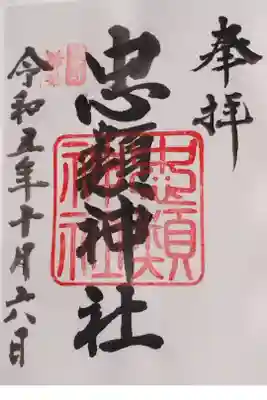 奉拝
忠類神社
令和五年十月六日
忠類
神社